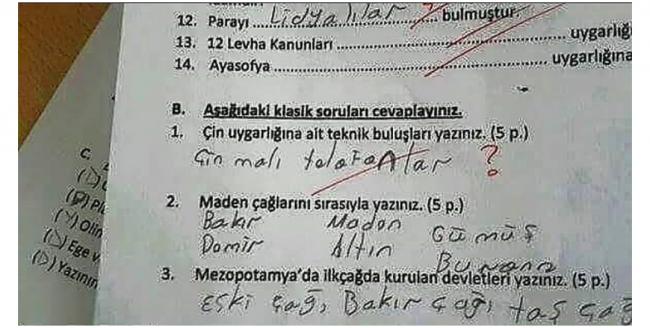 12. Parayı ....Lidyalılar........ bulmuştur.
13. 12 Levha Kanunları ........................................ uygarlığı
14. Ayasofya ........................................ uygarlığına
B. Aşağıdaki klasik soruları cevaplayınız.
1. Çin uygarlığına ait teknik buluşları yazınız. (5 p.)
Çin malı telefonlar ?
2. Maden çağlarını sırasıyla yazınız. (5 p.)
Bakır Maden Gümüş
Demir Altın
3. Mezopotamya'da ilkçağda kurulan devletleri yazınız. (5 p.)
Eski çağ, Bakır çağı taş çağ
C.
(D)
(D) Pl
(Y) Olin
(D) Ege v
(D) Yazının